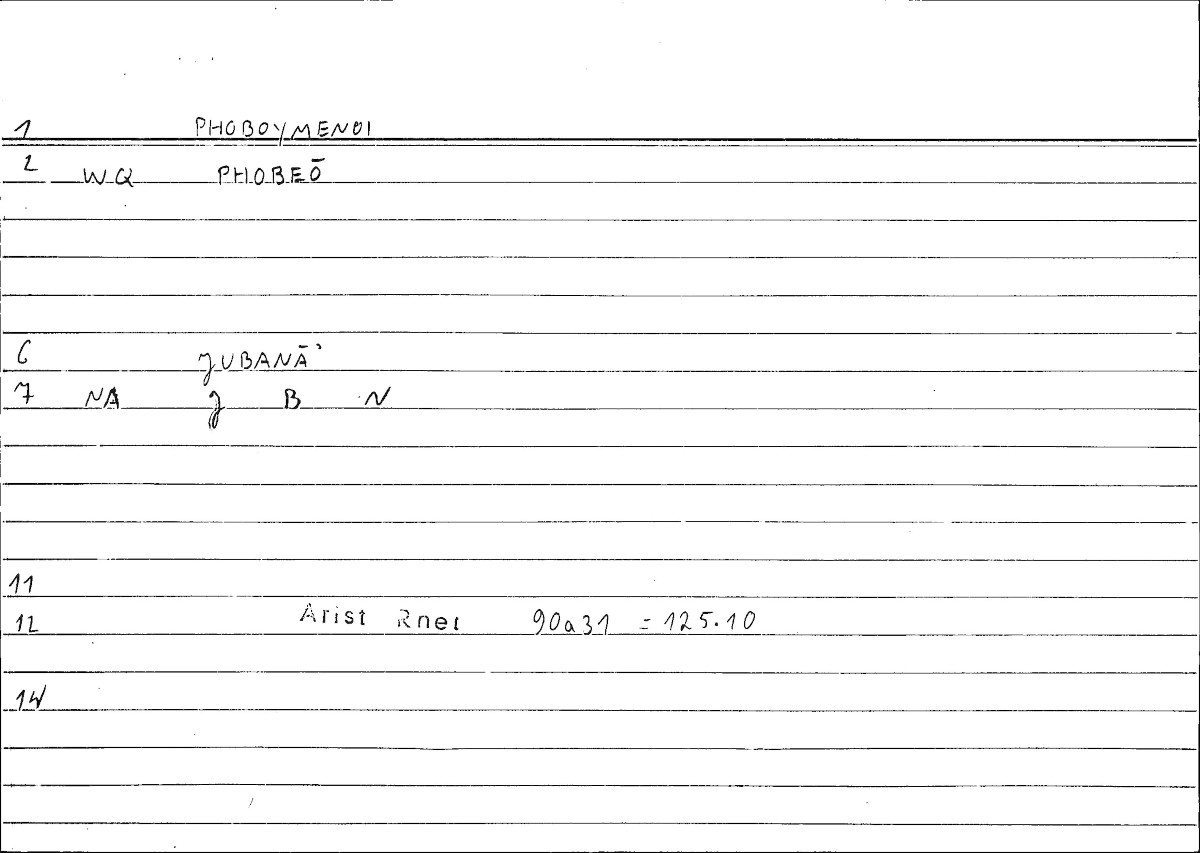 1 PHOBOYMENOI
2 WQ PHOBEŌ
6 ȷUBANĀʾ
7 NA ȷ B N
11
12 Arist Rhet 90a31 = 125.10
14